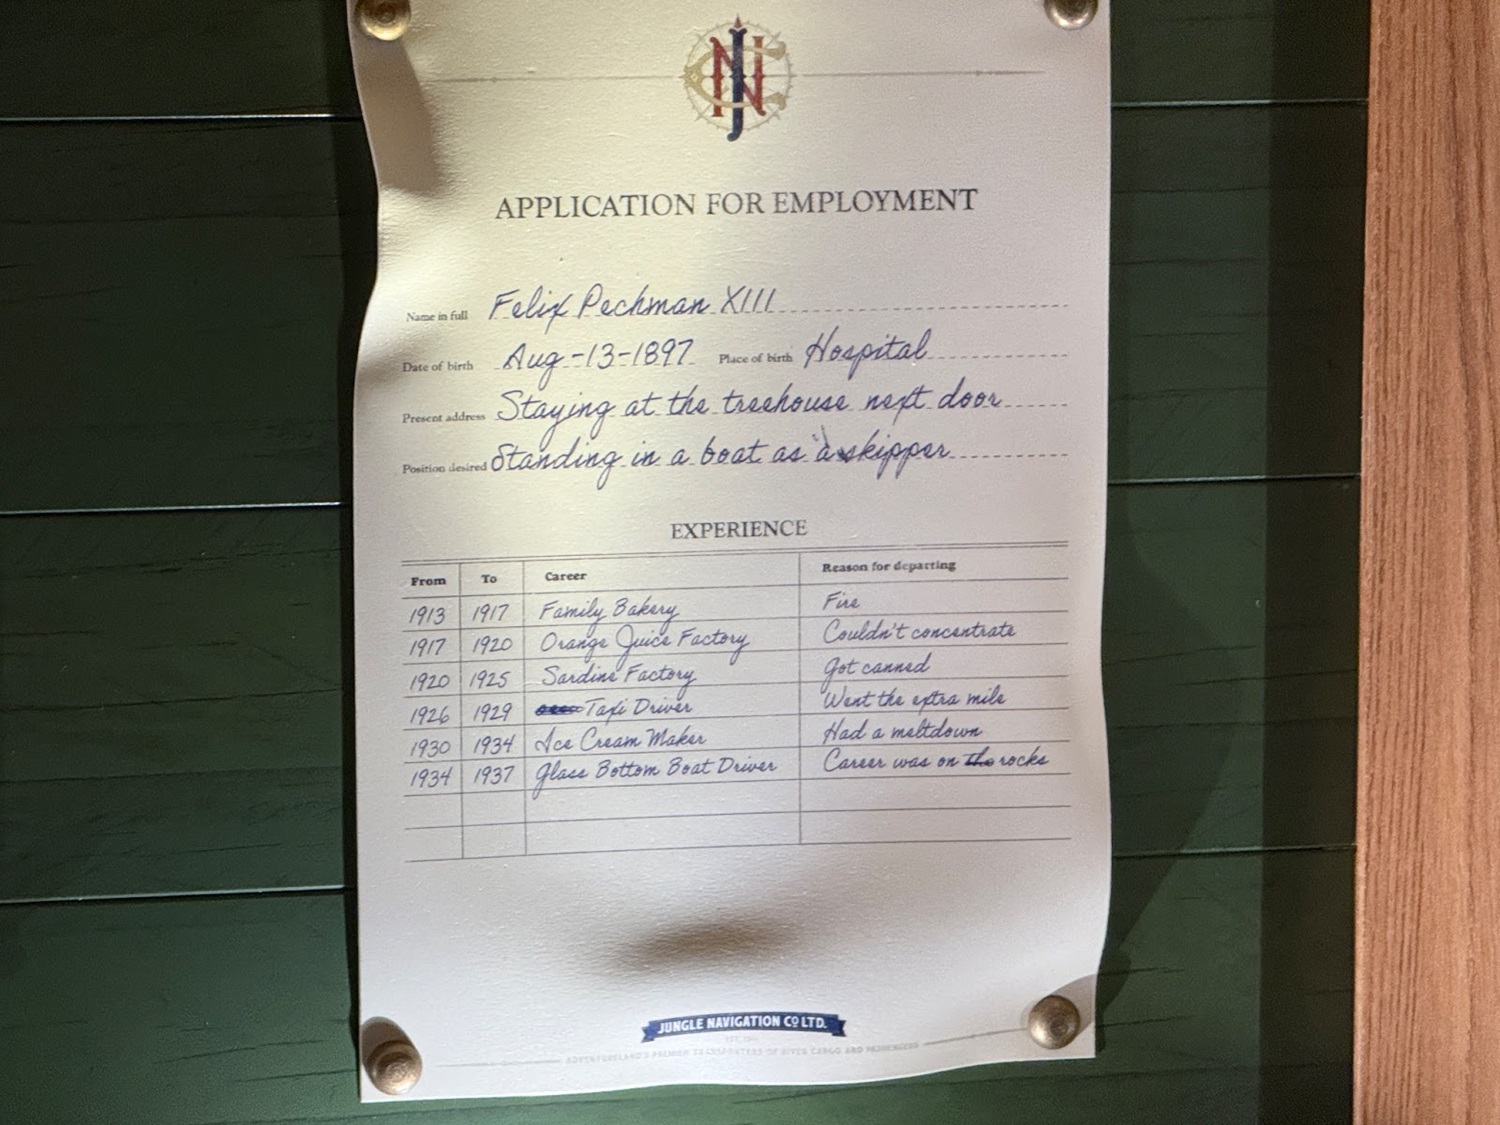 NJC
APPLICATION FOR EMPLOYMENT
Name in full Felix Pechman XIII
Date of birth Aug-13-1897 Place of birth Hospital
Present address Staying at the treehouse next door
Position desired Standing in a boat as a skipper
EXPERIENCE
From To Career Reason for departing
1913 1917 Family Bakery Fire
1917 1920 Orange Juice Factory Couldn't concentrate
1920 1925 Sardine Factory Got canned
1926 1929 Taxi Driver Went the extra mile
1930 1934 Ice Cream Maker Had a meltdown
1934 1937 Glass Bottom Boat Driver Career was on the rocks
JUNGLE NAVIGATION CO LTD.
ADVENTURELAND'S PREMIER TRANSPORTERS OF RIVER CARGO AND PASSENGERS